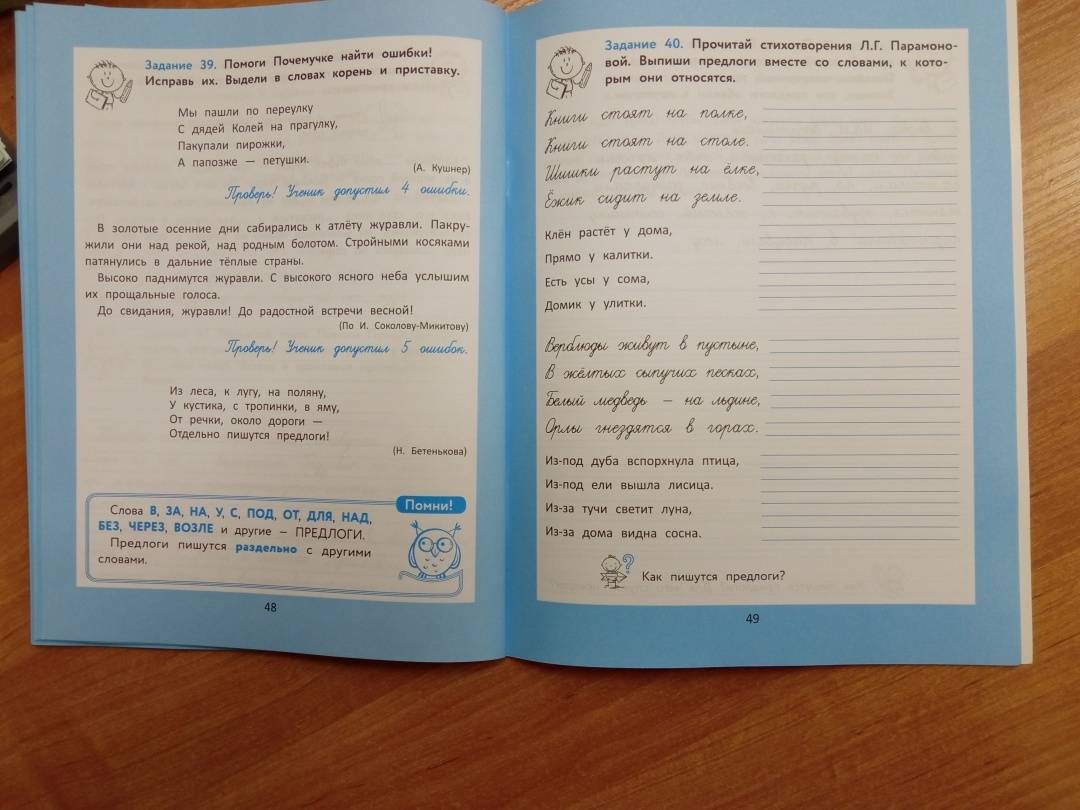 Задание 39. Помоги Почемучке найти ошибки!
Исправь их. Выдели в словах корень и приставку.
Мы пашли по переулку
С дядей Колей на прагулку,
Пакупали пирожки,
А папозже — петушки.
(А. Кушнер)
Проверь! Ученик допустил 4 ошибки.
В золотые осенние дни сабирались к атлёту журавли. Пакру-
жили они над рекой, над родным болотом. Стройными косяками
патянулись в дальние тёплые страны.
Высоко паднимутся журавли. С высокого ясного неба услышим
их прощальные голоса.
До свидания, журавли! До радостной встречи весной!
(По И. Соколову-Микитову)
Проверь! Ученик допустил 5 ошибок.
Из леса, к лугу, на поляну,
У кустика, с тропинки, в яму,
От речки, около дороги —
Отдельно пишутся предлоги!
(Н. Бетенькова)
Помни!
Слова В, ЗА, НА, У, С, ПОД, ОТ, ДЛЯ, НАД,
БЕЗ, ЧЕРЕЗ, ВОЗЛЕ и другие – ПРЕДЛОГИ.
Предлоги пишутся раздельно с другими
словами.
48
Задание 40. Прочитай стихотворения Л.Г. Парамоно-
вой. Выпиши предлоги вместе со словами, к кото-
рым они относятся.
Книги стоят на полке,
Книги стоят на столе.
Шишки растут на ёлке,
Ёжик сидит на земле.
Клён растёт у дома,
Прямо у калитки.
Есть усы у сома,
Домик у улитки.
Верблюды живут в пустыне,
В жёлтых сыпучих песках,
Белый медведь – на льдине,
Орлы гнездятся в горах.
Из-под дуба вспорхнула птица,
Из-под ели вышла лисица.
Из-за тучи светит луна,
Из-за дома видна сосна.
?
Как пишутся предлоги?
49